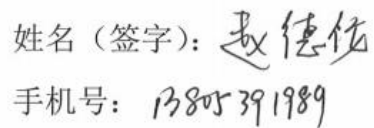 姓名（签字）：赵德优
手机号：13805391989